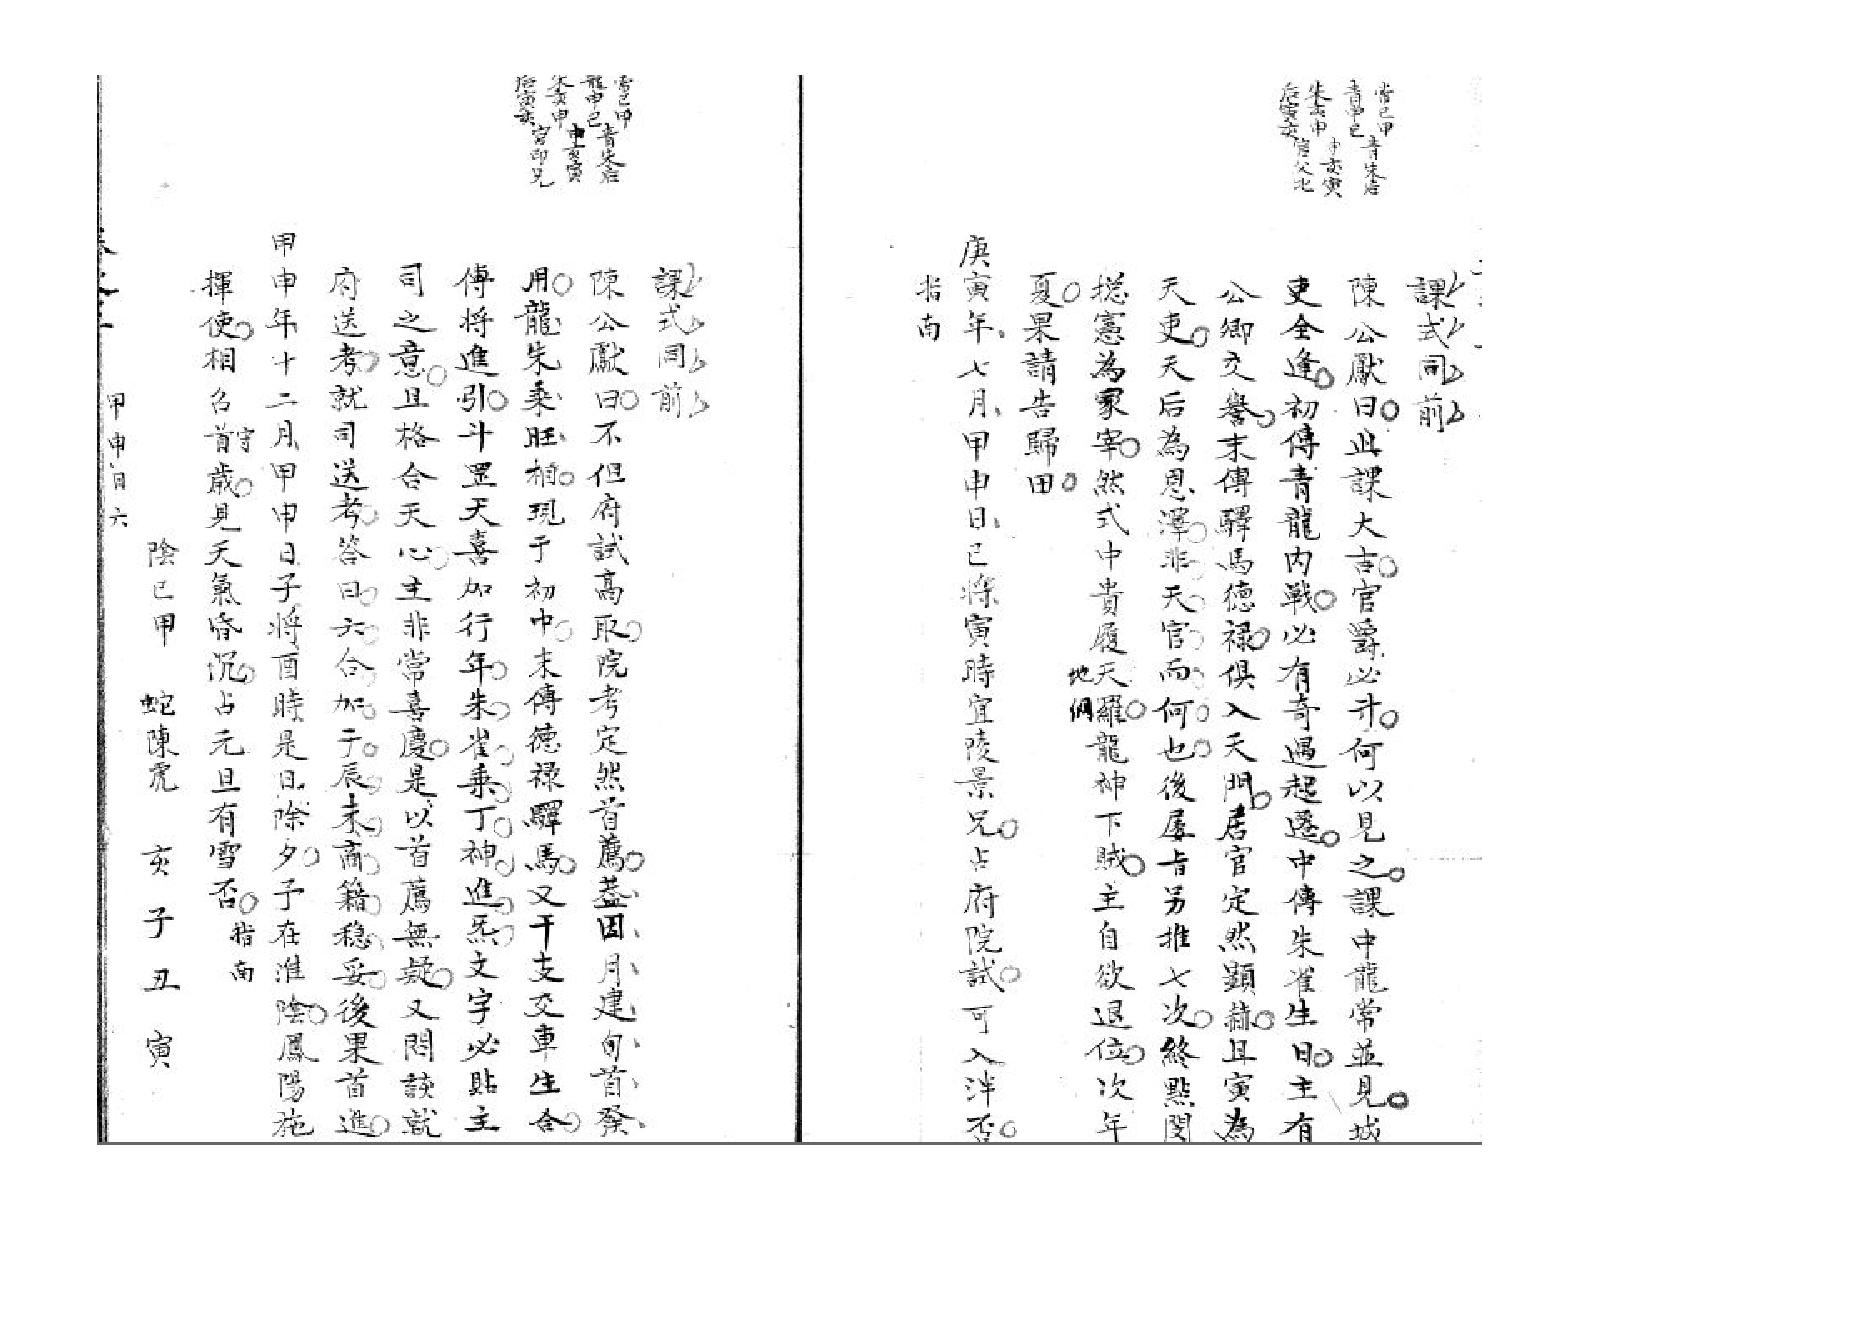 課式同前
陳公獻曰此課大吉官爵必升何以見之課中龍常並見城
吏全逢初傳青龍内戰必有奇遇起遷中傳朱雀生日主有
公卿交譽末傳驛馬德祿俱入天門居官定然顯赫且寅為
天吏天后為恩澤非天官而何也後屡旨另推七次終點閔
捴憲為冢宰然式中貴履天羅地網龍神下賊主自欲退位次年
夏果請告歸田
庚寅年七月甲申日巳将寅時宜陵景兄占府院試可入泮否
指南
青朱后
申亥寅
課式同前
陳公獻曰不但府試高取院考定然首薦蓋因月建旬首發
用龍朱乘旺相現于初中末傳德祿驛馬又干支交車生合
傳将進引斗罡天喜加行年朱雀乘丁神進炁文字必貼主
司之意且格合天心主非常喜慶是以首薦無疑又問談就
府送考就司送考答曰六合加于辰未商籍穩妥後果首進
甲申年十二月甲申日子将酉時是日除夕予在淮陰鳳陽施
揮使相召守首歲見天氣昏沉占元旦有雪否
指南
陰巳甲 蛇陳虎 亥子丑寅
甲申日六